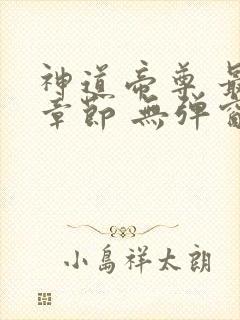 神道帝尊 最
章節 無弹窗
小島祥太朗